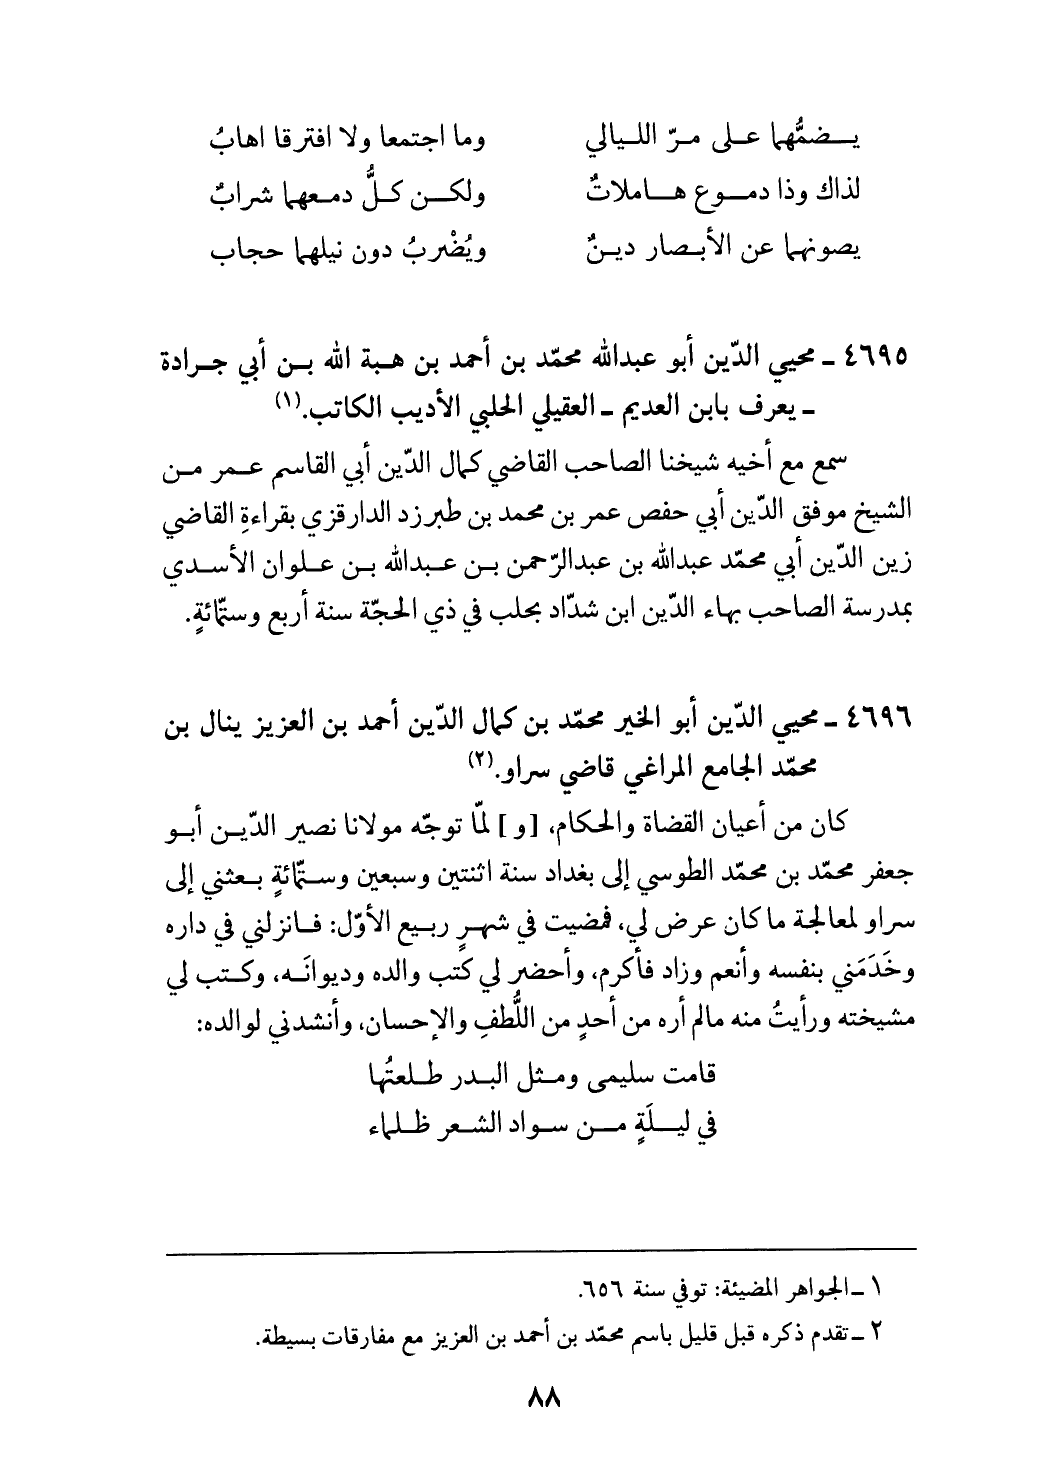 يضمُّهما على مرّ الليالي وما اجتمعا ولا افترقا اهابُ
لذاك وذا دموع هاملاتٌ ولكن كلُّ دمعهما شرابٌ
يصونهما عن الأبصار دينٌ ويُضْربُ دون نيلهما حجاب
٤٦٩٥ ـ محيي الدّين أبو عبدالله محمّد بن أحمد بن هبة الله بن أبي جرادة
ـ يعرف بابن العديم ـ العقيلي الحلبي الأديب الكاتب.(١)
سمع مع أخيه شيخنا الصاحب القاضي كمال الدّين أبي القاسم عمر من
الشيخ موفق الدّين أبي حفص عمر بن محمد بن طبرزد الدارقزي بقراءةِ القاضي
زين الدّين أبي محمّد عبدالله بن عبدالرّحمن بن عبدالله بن علوان الأسدي
بمدرسة الصاحب بهاء الدّين ابن شدّاد بحلب في ذي الحجّة سنة أربع وستّمائةٍ.
٤٦٩٦ ـ محيي الدّين أبو الخير محمّد بن كمال الدّين أحمد بن العزيز ينال بن
محمّد الجامع المراغي قاضي سراو.(٢)
كان من أعيان القضاة والحكام، [و] لمّا توجّه مولانا نصير الدّين أبو
جعفر محمّد بن محمّد الطوسي إلى بغداد سنة اثنتين وسبعين وستّمائةٍ بعثني إلى
سراو لمعالجة ما كان عرض لي، فمضيت في شهرٍ ربيع الأوّل: فانزلني في داره
وخَدَمَني بنفسه وأنعم وزاد فأكرم، وأحضر لي كتب والده وديوانَه، وكتب لي
مشيخته ورأيتُ منه مالم أره من أحدٍ من اللُّطفِ والإحسان، وأنشدني لوالده:
قامت سليمى ومثل البدر طلعتُها
في ليلَةٍ من سواد الشعر ظلماء
١ ـ الجواهر المضيئة: توفي سنة ٦٥٦.
٢ ـ تقدم ذكره قبل قليل باسم محمّد بن أحمد بن العزيز مع مفارقات بسيطة.
٨٨